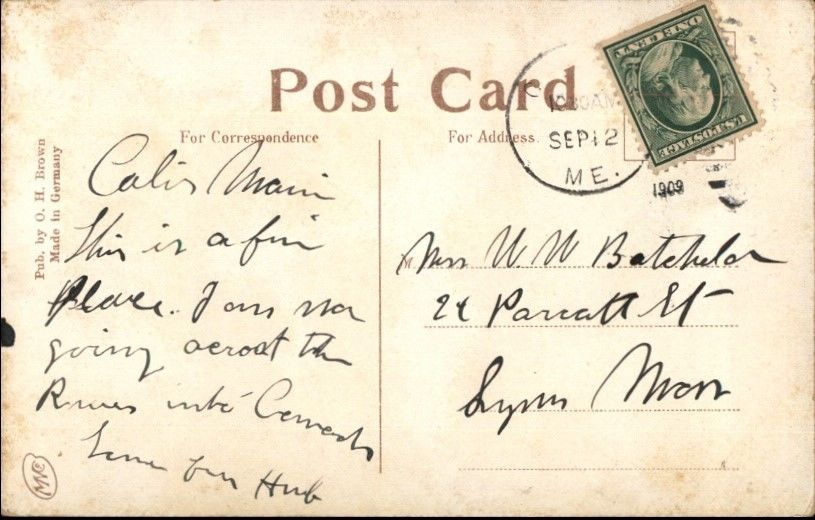 Post Card
For Correspondence
For Address.
Pub. by O. H. Brown
Made in Germany
10 30 AM
SEP 12
ME.
1909
U.S. POSTAGE
ONE CENT
Calis Main
This is a fin
place. I am now
going across the
River into Canada
Hub
Mrs W. W Batchelor
24 Parrott St
Lynn Mass